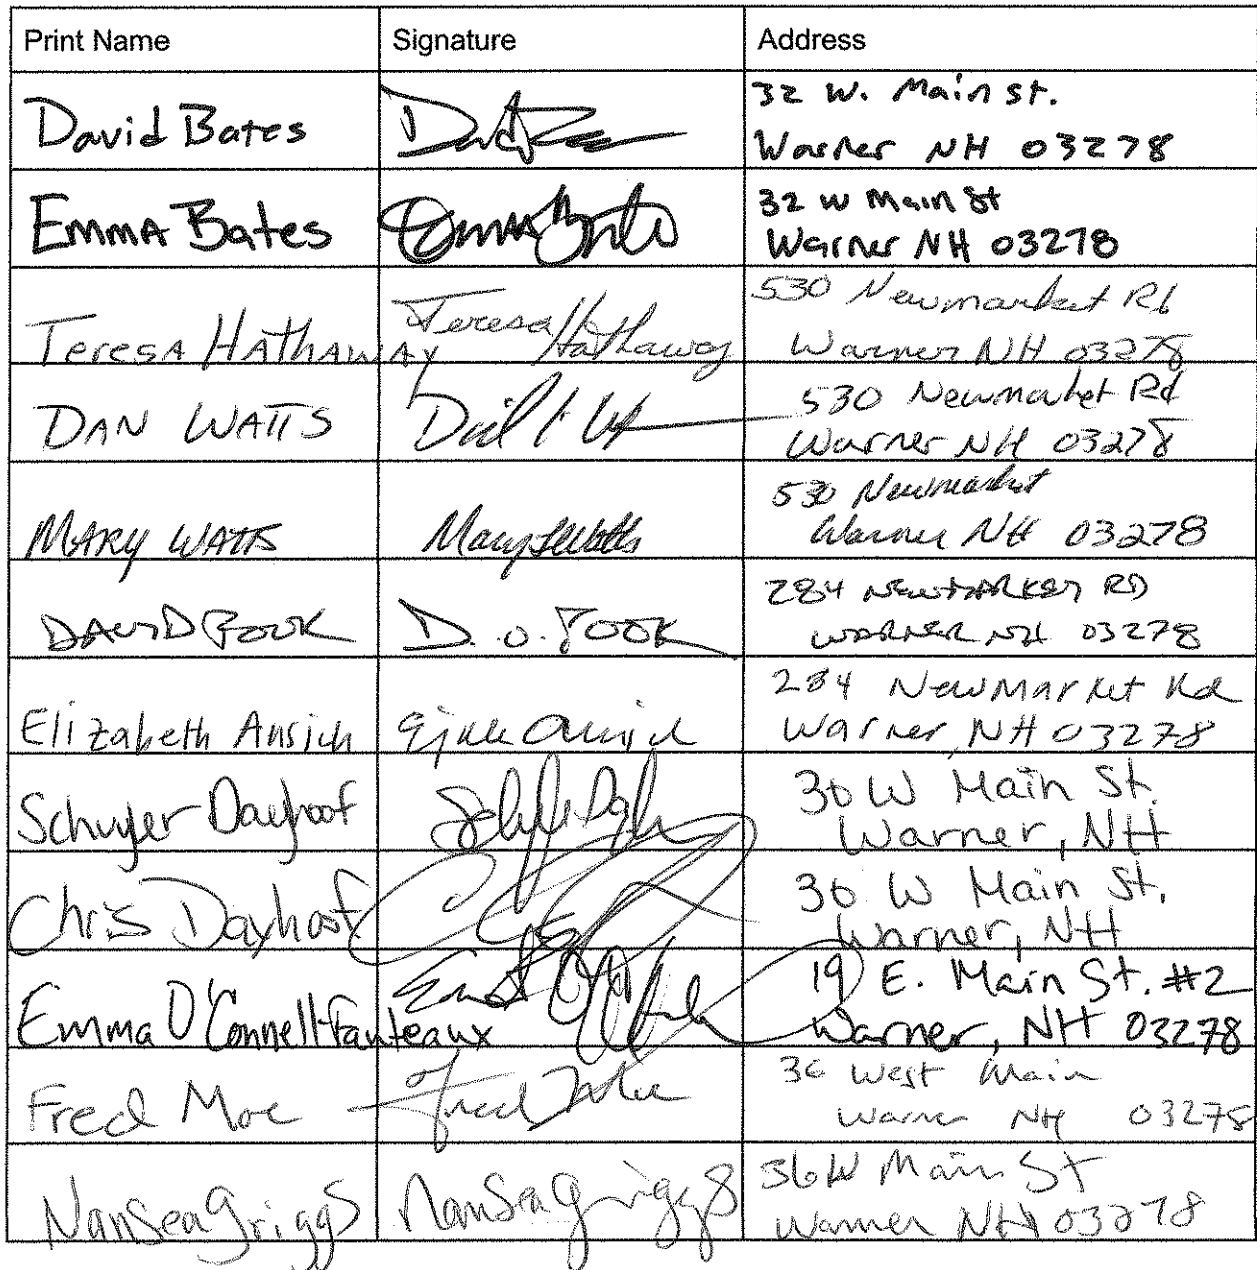 Print Name Signature Address
David Bates 32 W. Main St.
Warner NH 03278
Emma Bates Emma Bates 32 W Main St
Warner NH 03278
Teresa Hathaway Teresa Hathaway 530 Newmarket Rd
Warner NH 03278
Dan Watts 530 Newmarket Rd
Warner NH 03278
Mary Watts Mary Watts 530 Newmarket
Warner NH 03278
David D. O. 284 Newmarket RD
Warner NH 03278
Elizabeth 284 Newmarket Rd
Warner, NH 03278
Schuyler Dayhoof 36 W Main St.
Warner, NH
Chris Dayhoof 36 W Main St.
Warner, NH
Emma O'Connell-Fauteaux 19 E. Main St. #2
Warner, NH 03278
Fred Moe Fred Moe 36 West Main
Warner NH 03278
Nansea Griggs Nansea Griggs 36 W Main St
Warner NH 03278